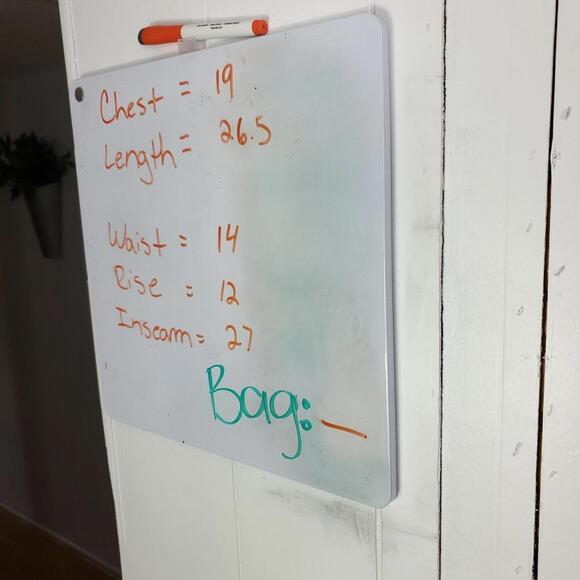 Chest = 19
Length = 26.5
Waist = 14
Rise = 12
Inseam = 27
Bag: _